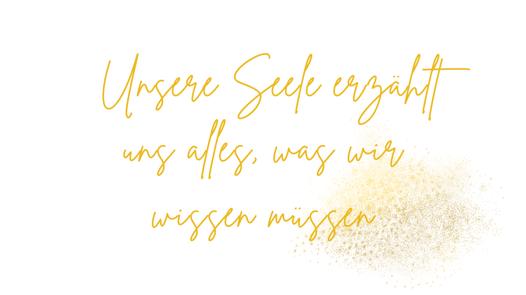 Unsere Seele erzählt
uns alles, was wir
wissen müssen